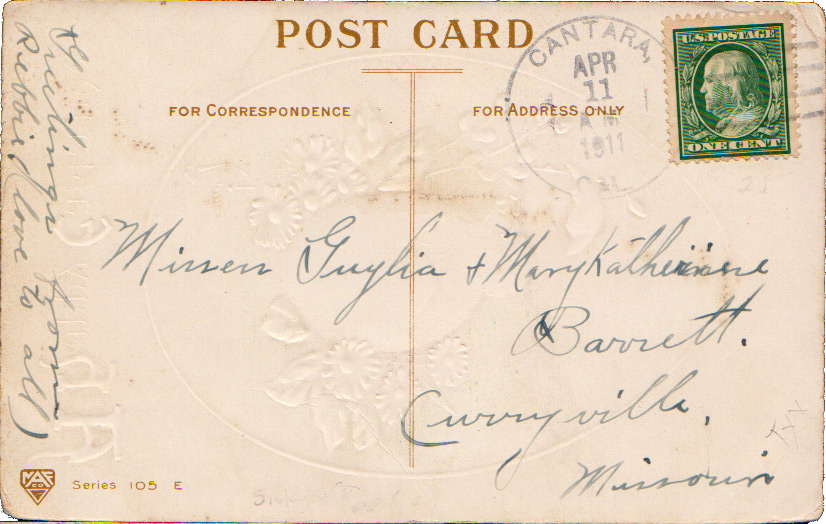 POST CARD
FOR CORRESPONDENCE
FOR ADDRESS ONLY
CANTARA,
APR
11
A M
1911
CAL.
U.S. POSTAGE
ONE CENT
Greetings from
Rebbie, (love to all)
Misses Guylia + Mary Katherine
Barrett.
Curryville,
Missouri
Series 105 E